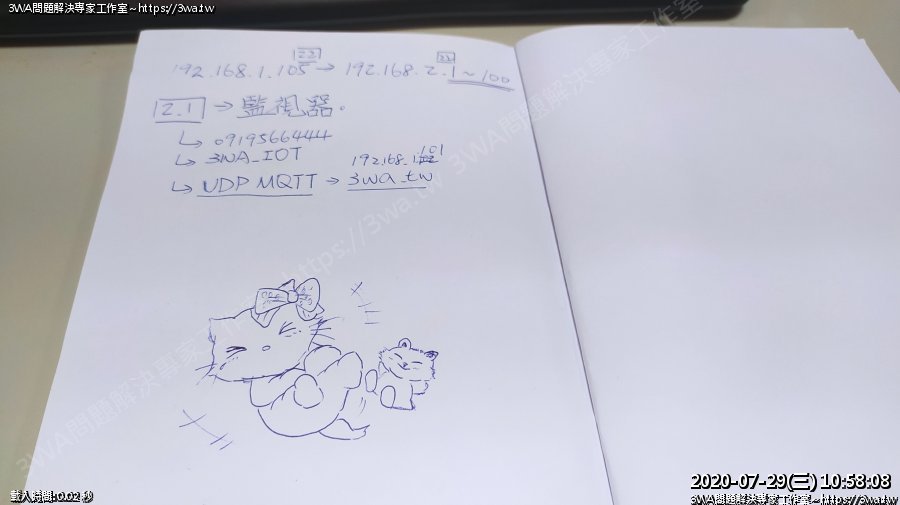 3WA問題解決專家工作室~https://3wa.tw
22 22
192.168.1.105→192.168.2.1~100
2.1→監視器。
↳0919566444
↳3WA_IOT 192.168.1.101
↳UDP MQTT→3wa.tw
3WA問題解決專家工作室~https://3wa.tw 3WA問題解決專家工作室
2020-07-29(三) 10:58:08
載入時間:0.02 秒
3WA問題解決專家工作室~https://3wa.tw